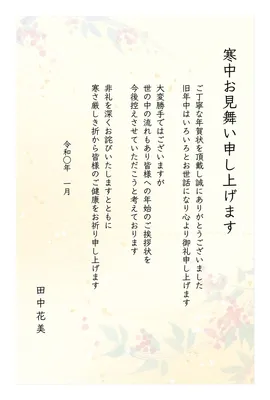 寒中お見舞い申し上げます
ご丁寧な年賀状を頂戴し誠にありがとうございました
旧年中はいろいろとお世話になり心より御礼申し上げます
大変勝手ではございますが
世の中の流れもあり皆様への年始のご挨拶状を
今後控えさせていただこうと考えております
非礼を深くお詫びいたしますとともに
寒さ厳しき折から皆様のご健康をお祈り申し上げます
令和〇年 一月
田中花美